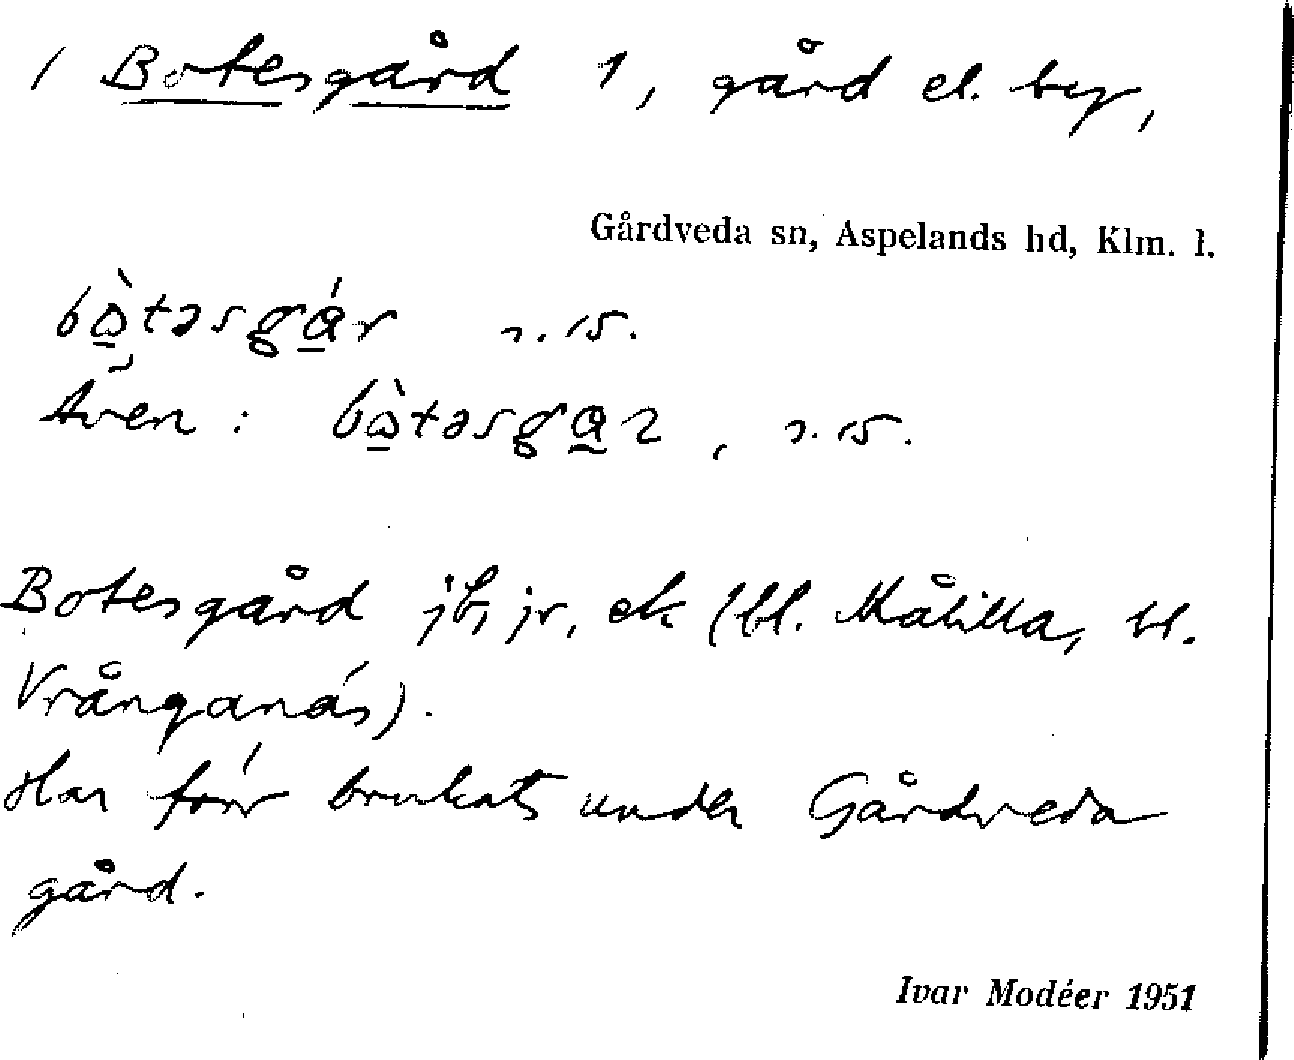 / Botesgård 1, gård el. by,
Gårdveda sn, Aspelands hd, Klm. l.
bòtəsgár
Även : bòtəsgaɾ ,
Botesgård jb, jr, ek (bl. Målilla, bl.
Vrånganäs).
Har förr brukats under Gårdveda
gård.
Ivar Modéer 1951